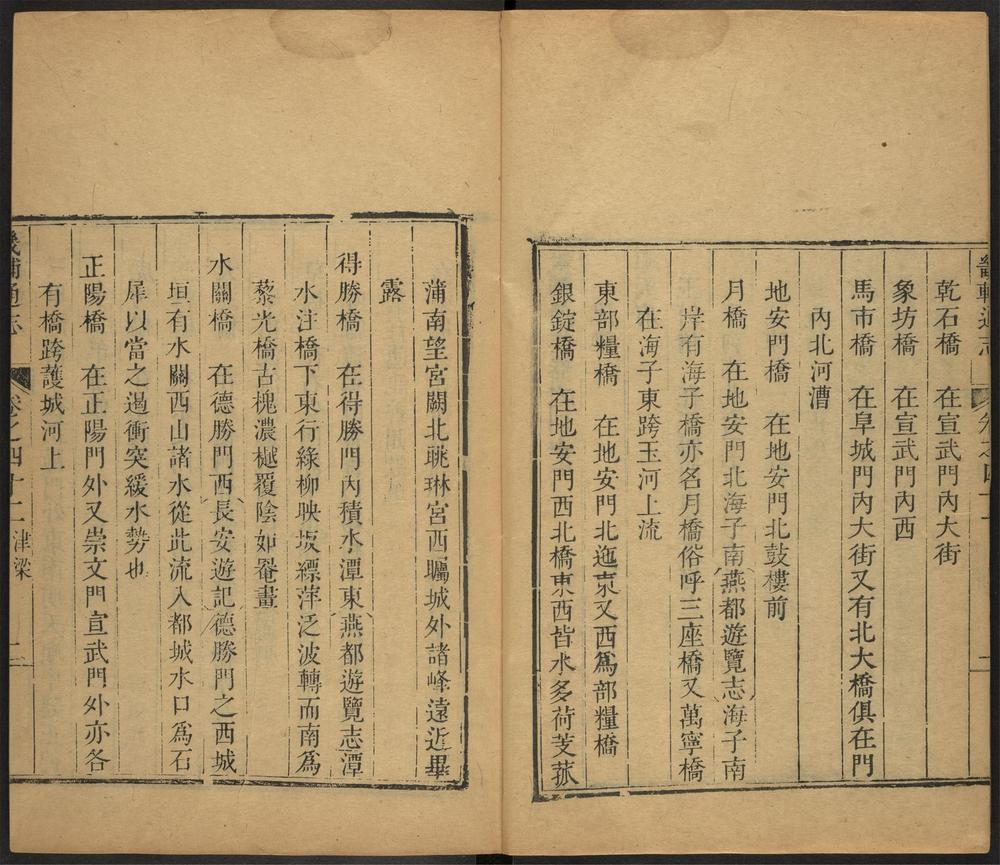 畿輔通志 卷之四十二
乾石橋　在宣武門內大街
象坊橋　在宣武門內西
馬市橋　在阜城門內大街又有北大橋俱在門
內北河漕
地安門橋　在地安門北鼓樓前
月橋　在地安門北海子南燕都遊覽志海子南
岸有海子橋亦名月橋俗呼三座橋又萬寧橋
在海子東跨玉河上流
東部糧橋　在地安門北迤東又西為部糧橋
銀錠橋　在地安門西北橋東西皆水多荷芰菰
蒲南望宮闕北眺琳宮西矚城外諸峰遠近畢
露
得勝橋　在得勝門內積水潭東燕都遊覽志潭
水注橋下東行綠柳映坂縹萍泛波轉而南為
蔡光橋古槐濃樾覆陰如罨畫
水關橋　在德勝門西長安遊記德勝門之西城
垣有水關西山諸水從此流入都城水口為石
犀以當之遏衝突緩水勢也
正陽橋　在正陽門外又崇文門宣武門外亦各
有橋跨護城河上
畿輔通志 卷之四十二 津梁 二